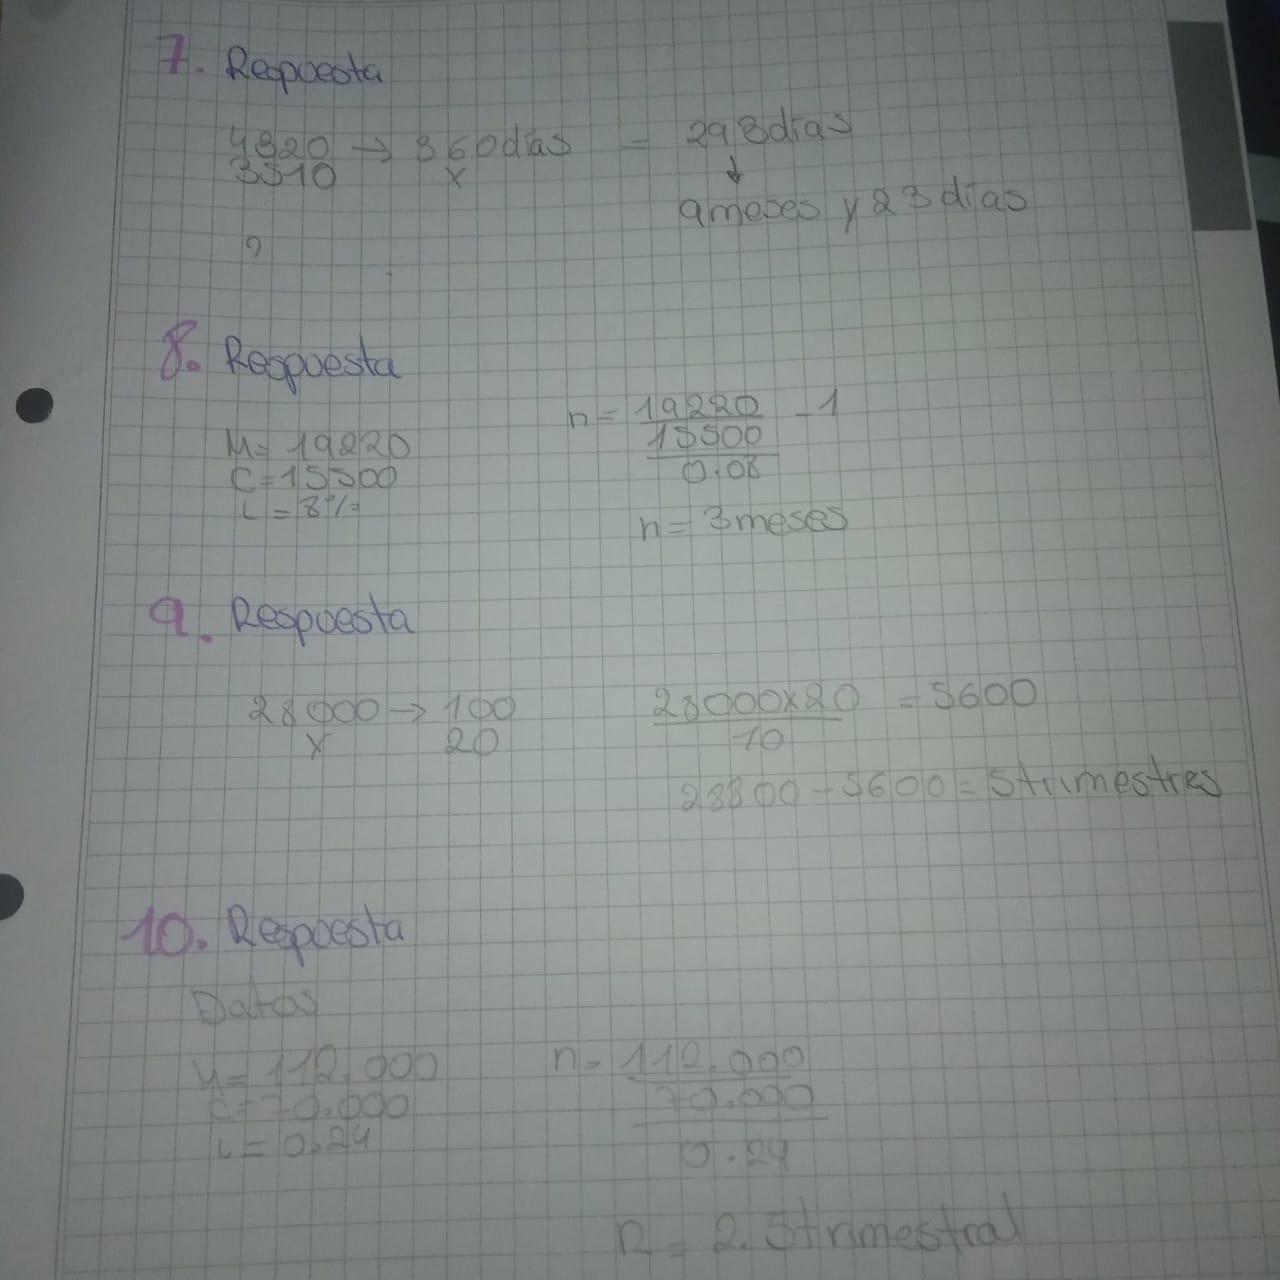 7. Respuesta
4320 → 360días = 293días
3510 x ↓
9 meses y 23 días
?
8. Respuesta
M= 19220
C=15500
i = 8%
n= 19220 - 1
15500
0.08
n= 3meses
9. Respuesta
28000 → 100
x 20
28000x20 = 5600
10
28800-5600= 5trimestres
10. Respuesta
Datos
M= 112.000
C=70.000
i= 0.24
n= 112.000
70.000
0.24
n= 2.5trimestral